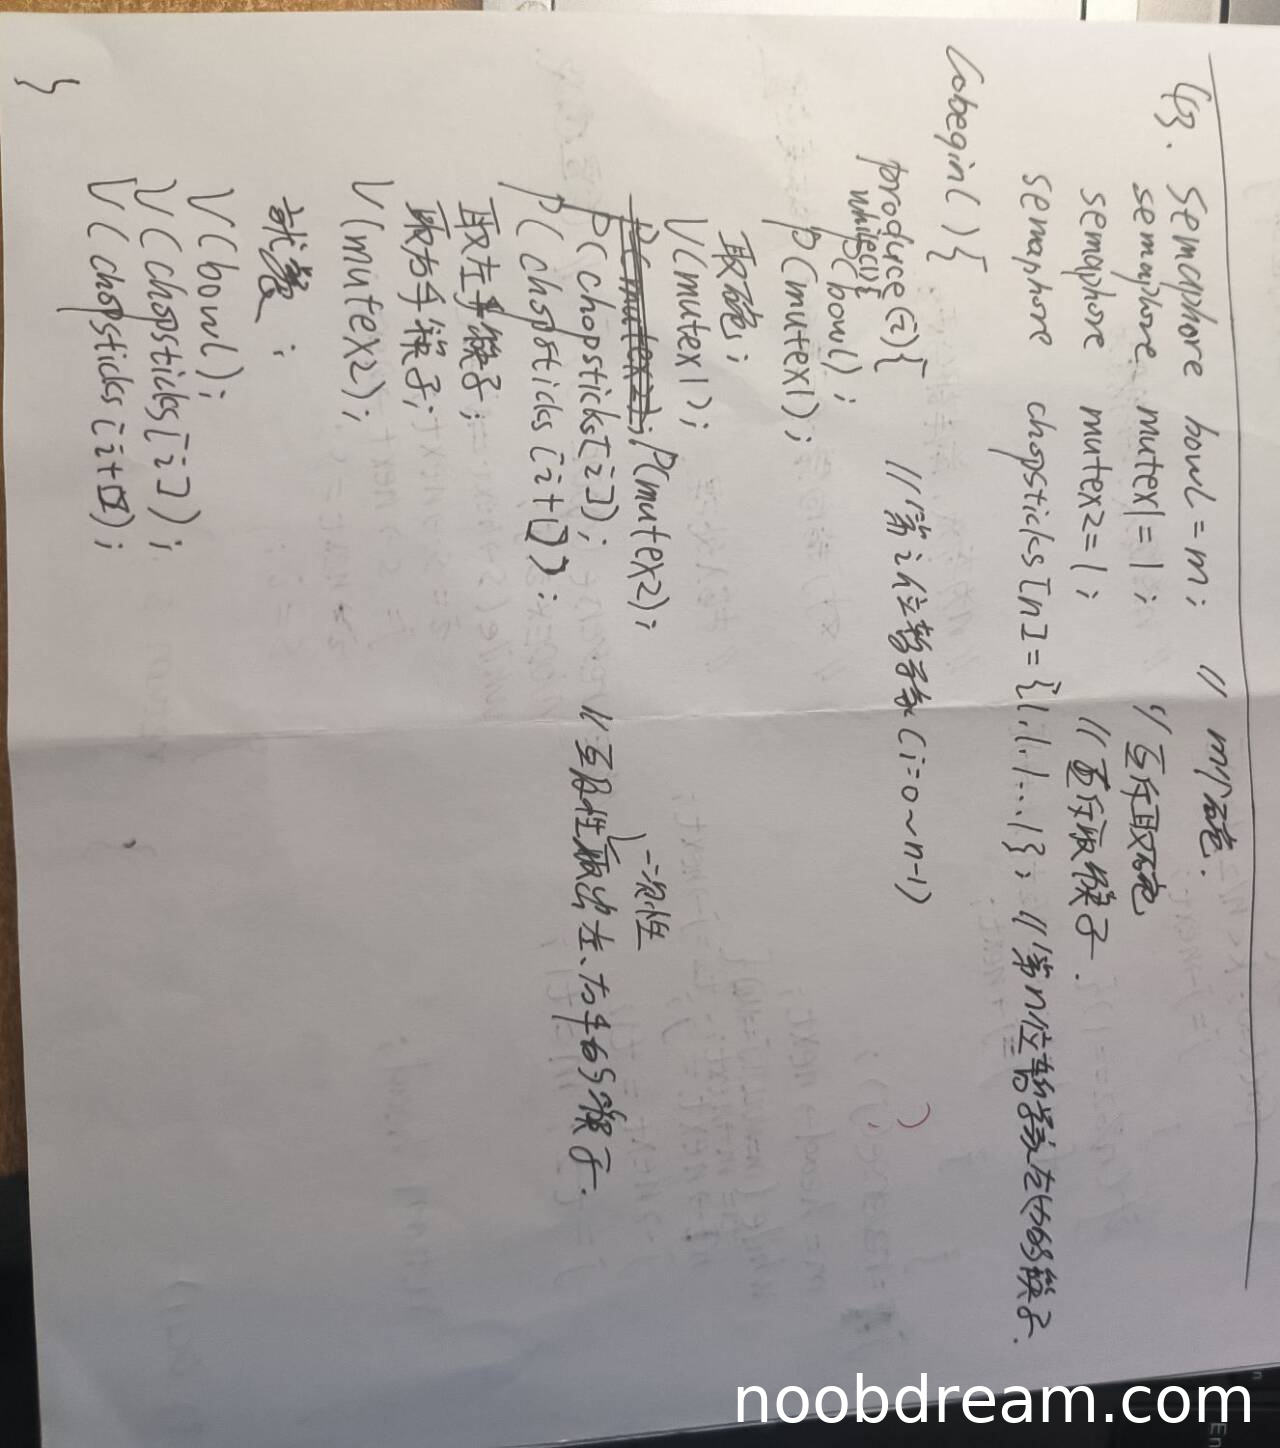 43. Semaphore bowl = m; // m个碗.
semaphore mutex1 = 1; // 互斥取碗
semaphore mutex2 = 1; // 互斥取筷子.
semaphore chopsticks[n] = {1.1.1...1}; // 第n位哲学家左边的筷子.
Cobegin(){
produce(i){ // 第i位哲学家(i=0~n-1)
while(1){
P(bowl);
P(mutex1);
取碗;
V(mutex1);
P(mutex2); P(mutex2);
P(chopsticks[i]); // 互斥性取出左、右手的筷子.
一次性
P(chopsticks[i+1]);
取左手筷子;
取右手筷子;
V(mutex2);
就餐;
V(bowl);
V(chopsticks[i]);
V(chopsticks[i+1]);
}
noobdream.com